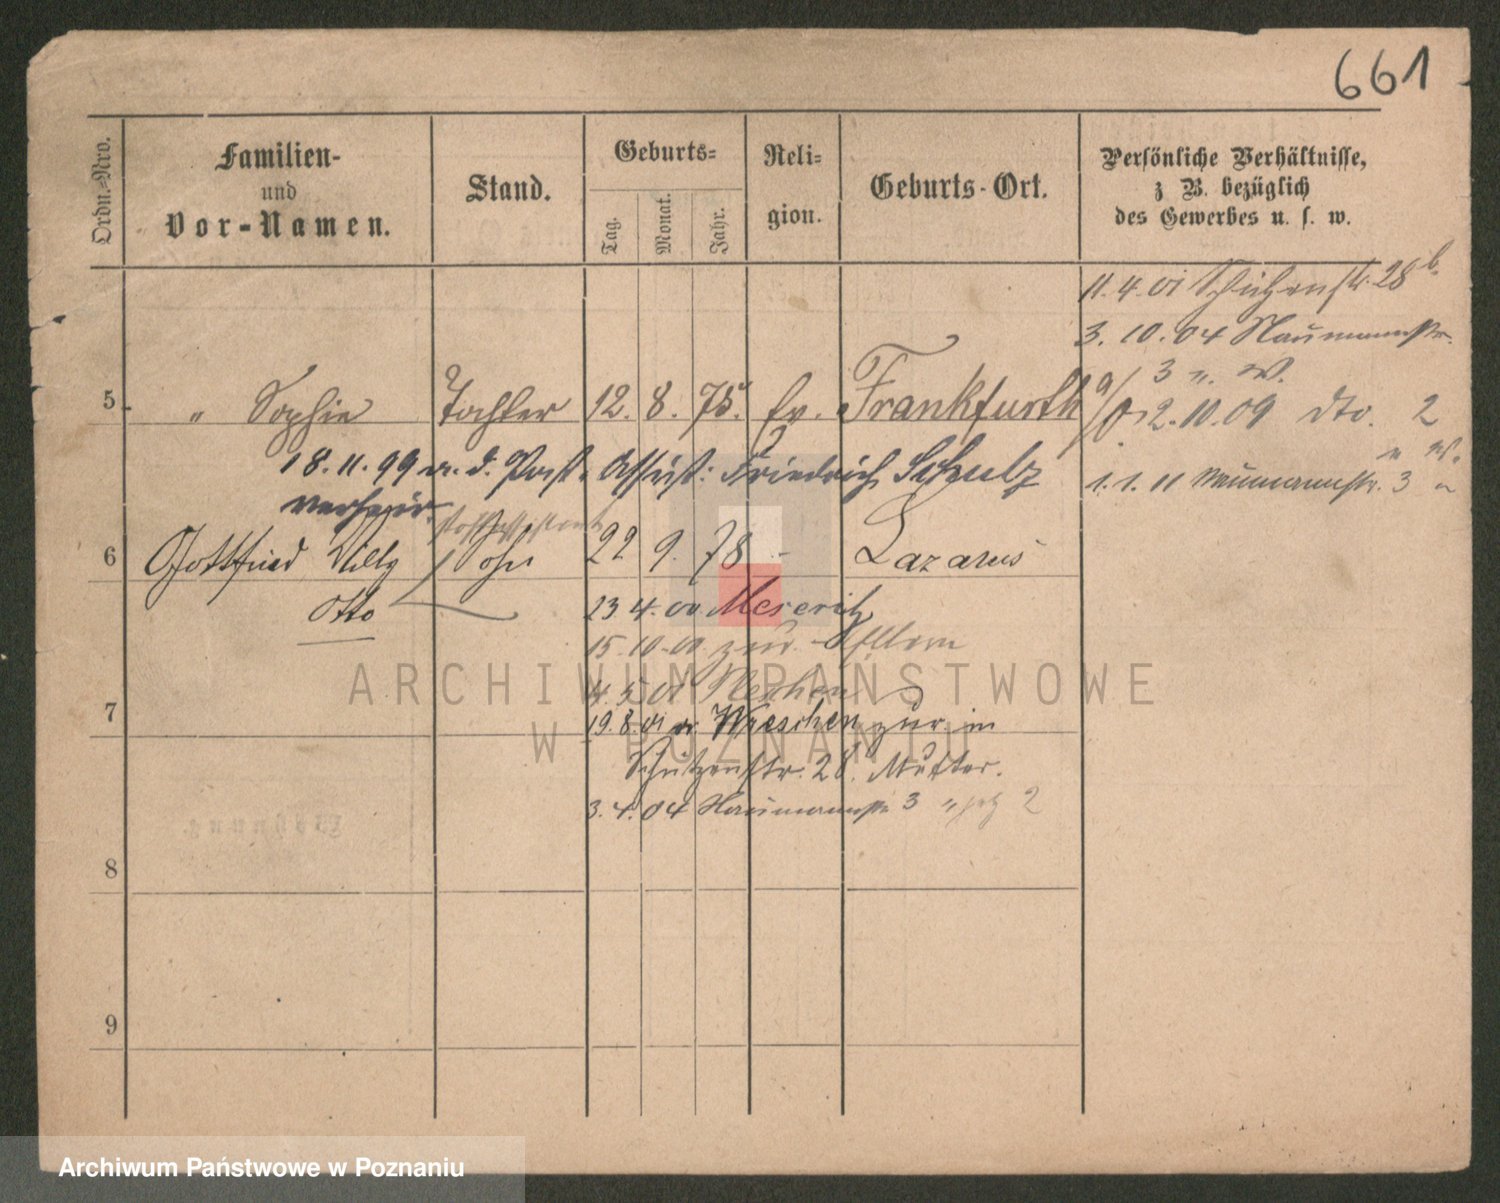 661
Ordn.-Nro.
Familien-
und
Vor-Namen.
Stand.
Geburts-
Tag.
Monat.
Jahr.
Reli-
gion.
Geburts-Ort.
Persönliche Verhältnisse,
z. B. bezüglich
des Gewerbes u. s. w.
11.4.01 Schützenstr. 28 b.
3.10.04 Naumannstr.
3 u. W.
5 " Sophie Tochter 12. 8. 75. ev. Frankfurth a/O
2.10.09 dto. 2
" W.
18.11.99 m. d. Post-Assist: Friedrich Schulz
verheir.
1.1.11 Naumannstr. 3
Postassistent
6 Gottfried Willy Sohn 22 9. 78 - Lazarus
Otto
23 4. 00 Meseritz
15.10.00 zur. Eltern
4.5.01
19.8.01 v. Wreschen zur. in
Schützenstr. 28. Mutter.
3.4.04 Naumannstr 3 " jetz 2
7
8
9
ARCHIWUM PAŃSTWOWE
W POZNANIU
Archiwum Państwowe w Poznaniu